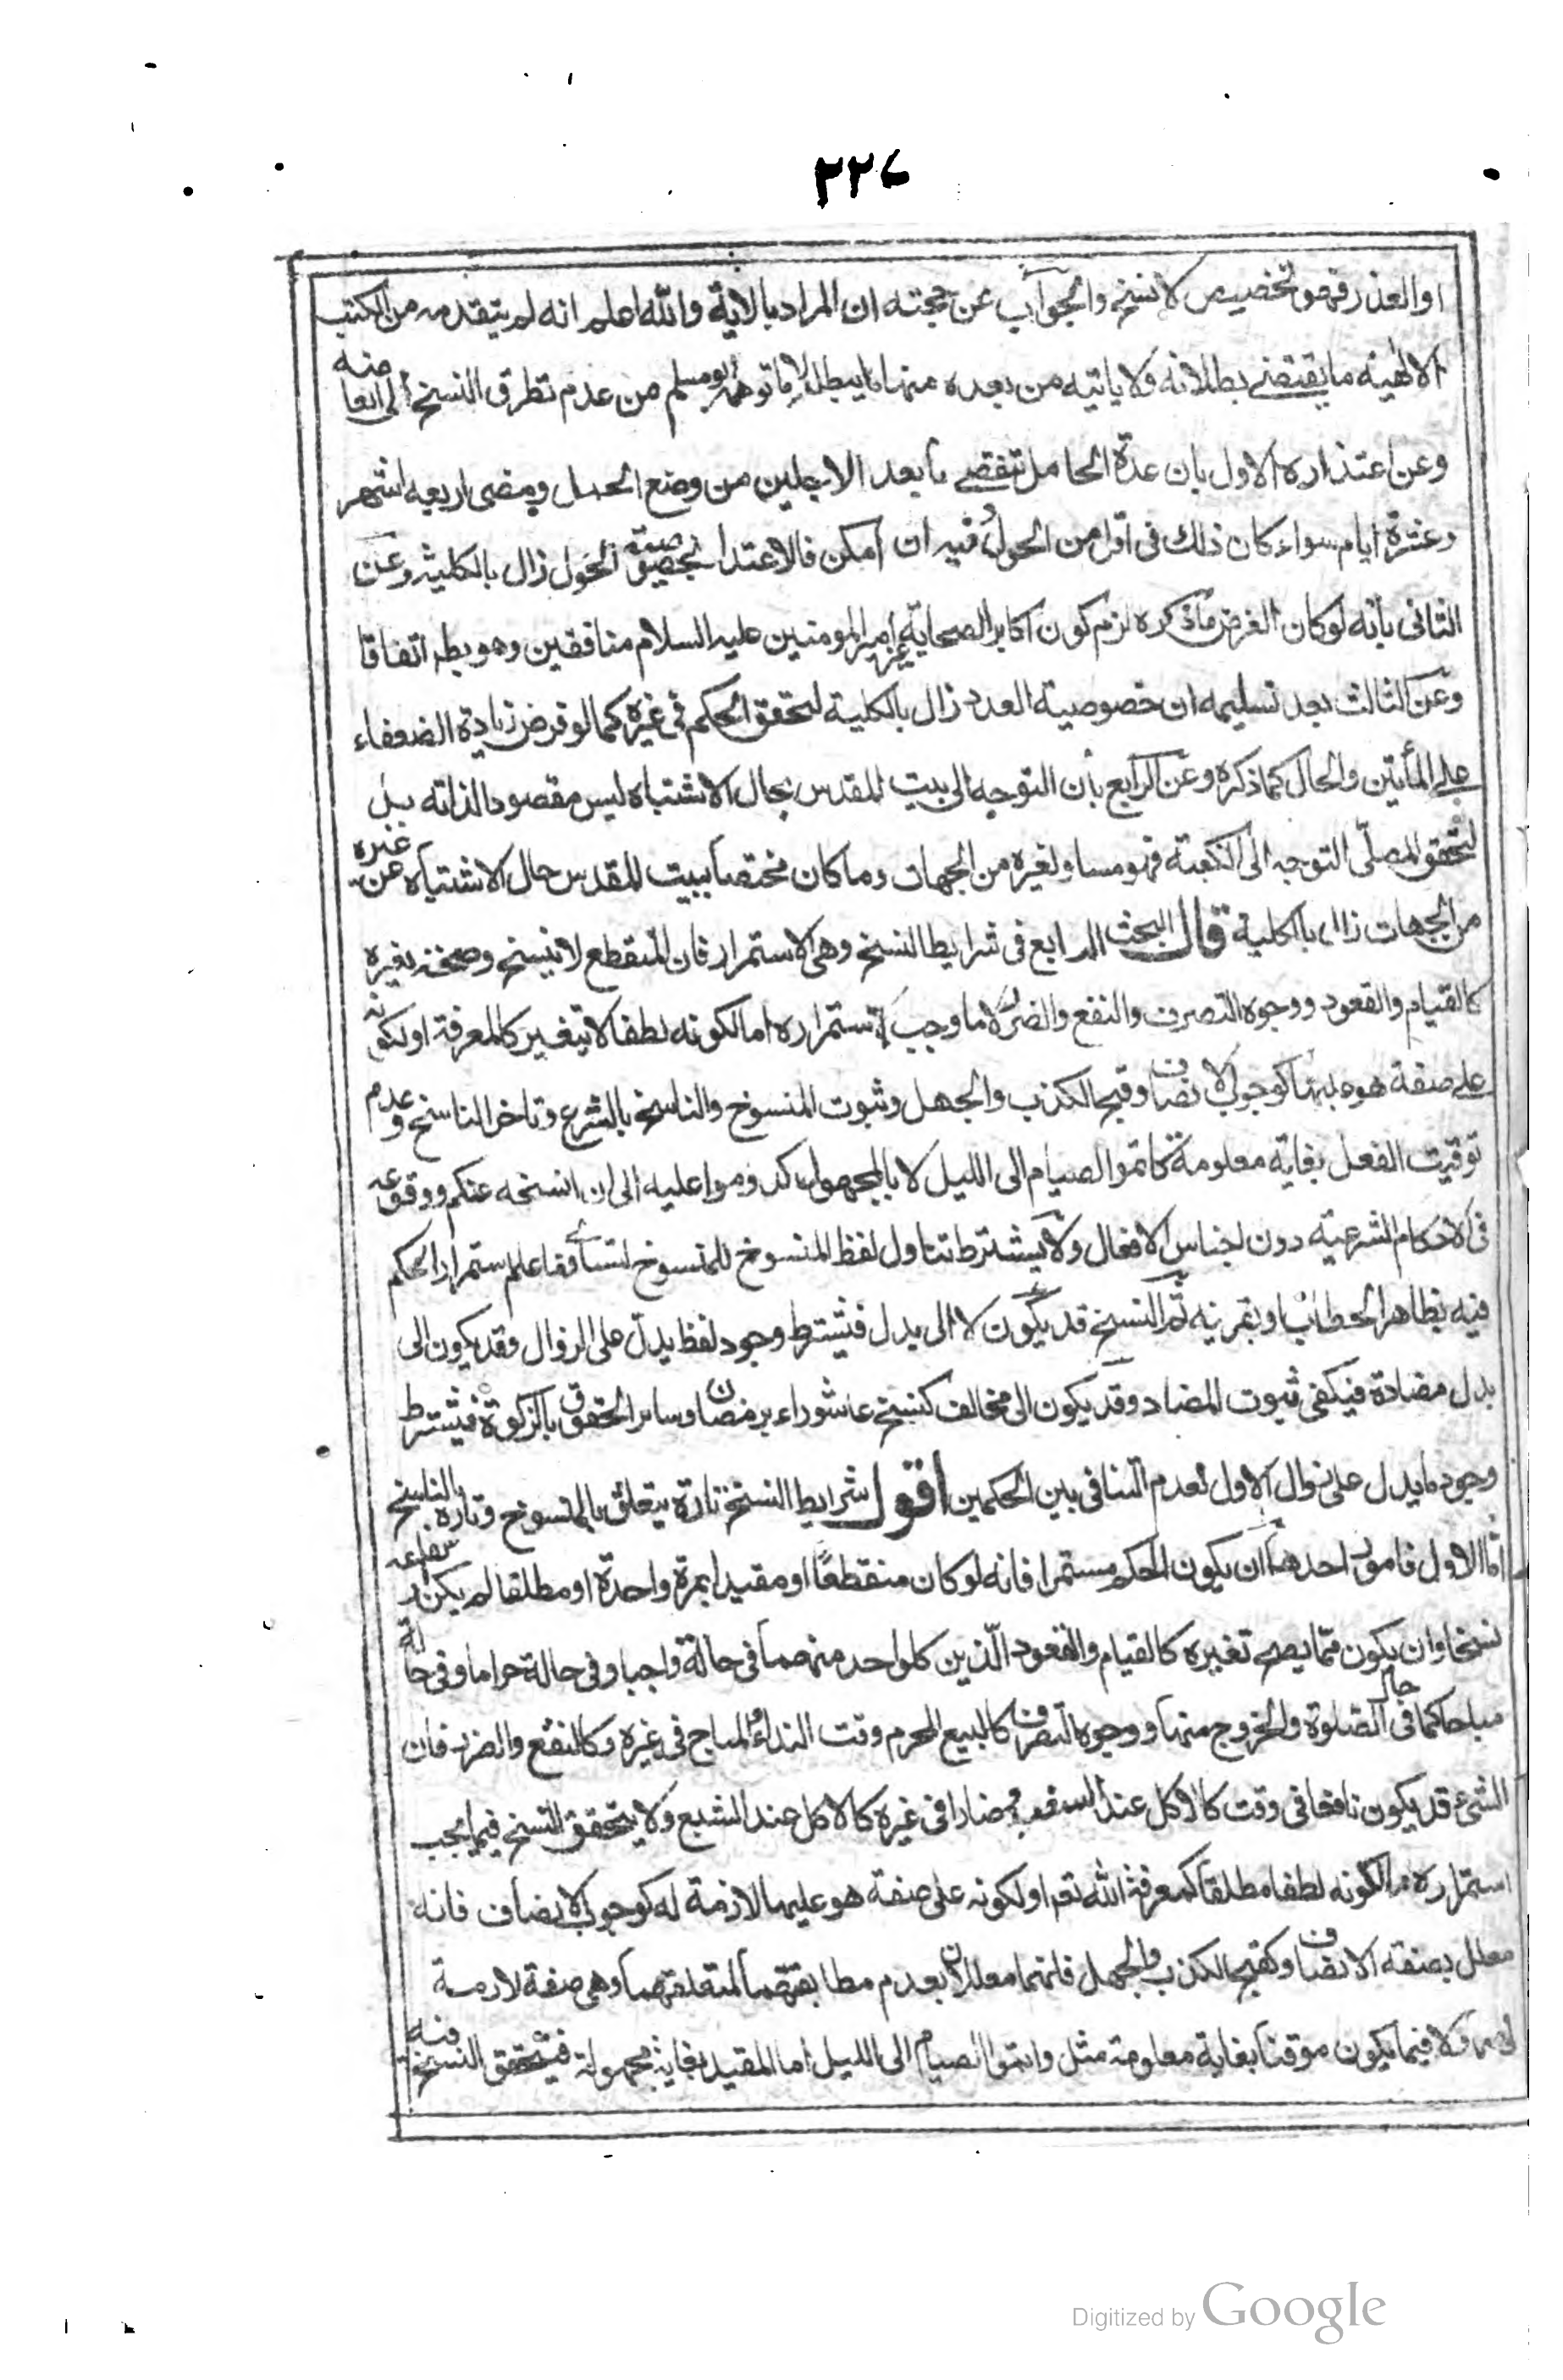 ٢٢٧
او العذر فهو تخصيص لا نسخ والجواب عن حجته ان المراد بالاية والله اعلم انه لم يتقدمه من الكتب
الالهية ما يقتضى بطلانه ولا ياتيه من بعده منها ما يبطله لا ما توهمه ابو مسلم من عدم تطرق النسخ الى ابعاضه
وعن اعتذاره الاول بان عدة الحامل تنقضى بابعد الاجلين من وضع الحمل ومضى اربعة اشهر
وعشرة ايام سواء كان ذلك فى اقل من الحول وفيه ان امكن فالاعتداد بخصوصية الحول زال بالكلية وعن
الثانى بانه لو كان الغرض ما ذكره لزم كون اكابر الصحابة غير امير المومنين عليه السلام منافقين وهو بط اتفاقا
وعن الثالث بعد تسليمه ان خصوصية العدد زال بالكلية لتحقق الحكم فى غيره كما لو فرض زيادة الضعفاء
على المأتين والحال كما ذكره وعن الرابع بان التوجه الى بيت المقدس بحال الاشتباه ليس مقصودا لذاته بل
لتحقق المصلى التوجه الى الكعبة فهو مساو لغيره من الجهات وما كان مختصا ببيت المقدس حال الاشتباه عن غيره
من الجهات زال بالكلية قال البحث الرابع فى شرايط النسخ وهى الاستمرار فان المنقطع لا ينسخ وصحة تغيره
كالقيام والقعود ووجوه التصرف والنفع والضرر لا ما وجب استمراره اما لكونه لطفا لا يتغير كالمعرفة او لكونه
على صفة هو عليها كوجوب الانصاف وقبح الكذب والجهل وثبوت المنسوخ والناسخ بالشرع وتاخر الناسخ وعدم
توقيت الفعل بغاية معلومة كاتموا الصيام الى الليل لا بالمجهول كدوموا عليه الى ان انسخه عنكم ووقوعه
فى الاحكام الشرعية دون اجناس الافعال ولا يشترط تناول لفظ المنسوخ للمنسوخ لنسافقا علم استمرار الحكم
فيه بظاهر الخطاب او بقرينه ثم النسخ قد يكون لا الى بدل فيشترط وجود لفظ يدل على الزوال وقد يكون الى
بدل مضادة فيكفى ثبوت المضاد وقد يكون الى مخالف كنسخ عاشوراء برمضان وساير الحقوق بالزكوة فيشترط
وجود ما يدل على زوال الاول لعدم التنافى بين الحكمين اقول شرايط النسخ تارة يتعلق بالمنسوخ وتارة بالناسخ
اما الاول فامور احدها ان يكون الحكم مستمرا فانه لو كان منقطعا او مقيدا بمرة واحدة او مطلقا لم يكن
نسخا وان يكون مما يصح تغيره كالقيام والقعود الذين كل واحد منهما فى حالة واجبا وفى حالة حراما وفى حالة
مباحا كما فى حال الصلوة والخروج منها ووجوه التصرف كالبيع المحرم وقت النداء المباح فى غيره وكالنفع والضرر فان
الشىء قد يكون نافعا فى وقت كالاكل عند السغب ومضارا فى غيره كالاكل عند الشبع ولا يتحقق النسخ فيما يجب
استمراره اما لكونه لطفا مطلقا كمعرفة الله تعم او لكونه على صفة هو عليها لازمة له كوجوب الانصاف فانه
معلل بصفة الانصاف وكقبح الكذب والجهل فانهما معللان بعدم مطابقتهما لمتعلقهما وهى صفة لازمة
لهما ولا فيما يكون موقتا بغاية معلومة مثل واتموا الصيام الى الليل اما المقيد بغاية مجهولة فيتحقق النسخ فيه
Digitized by Google